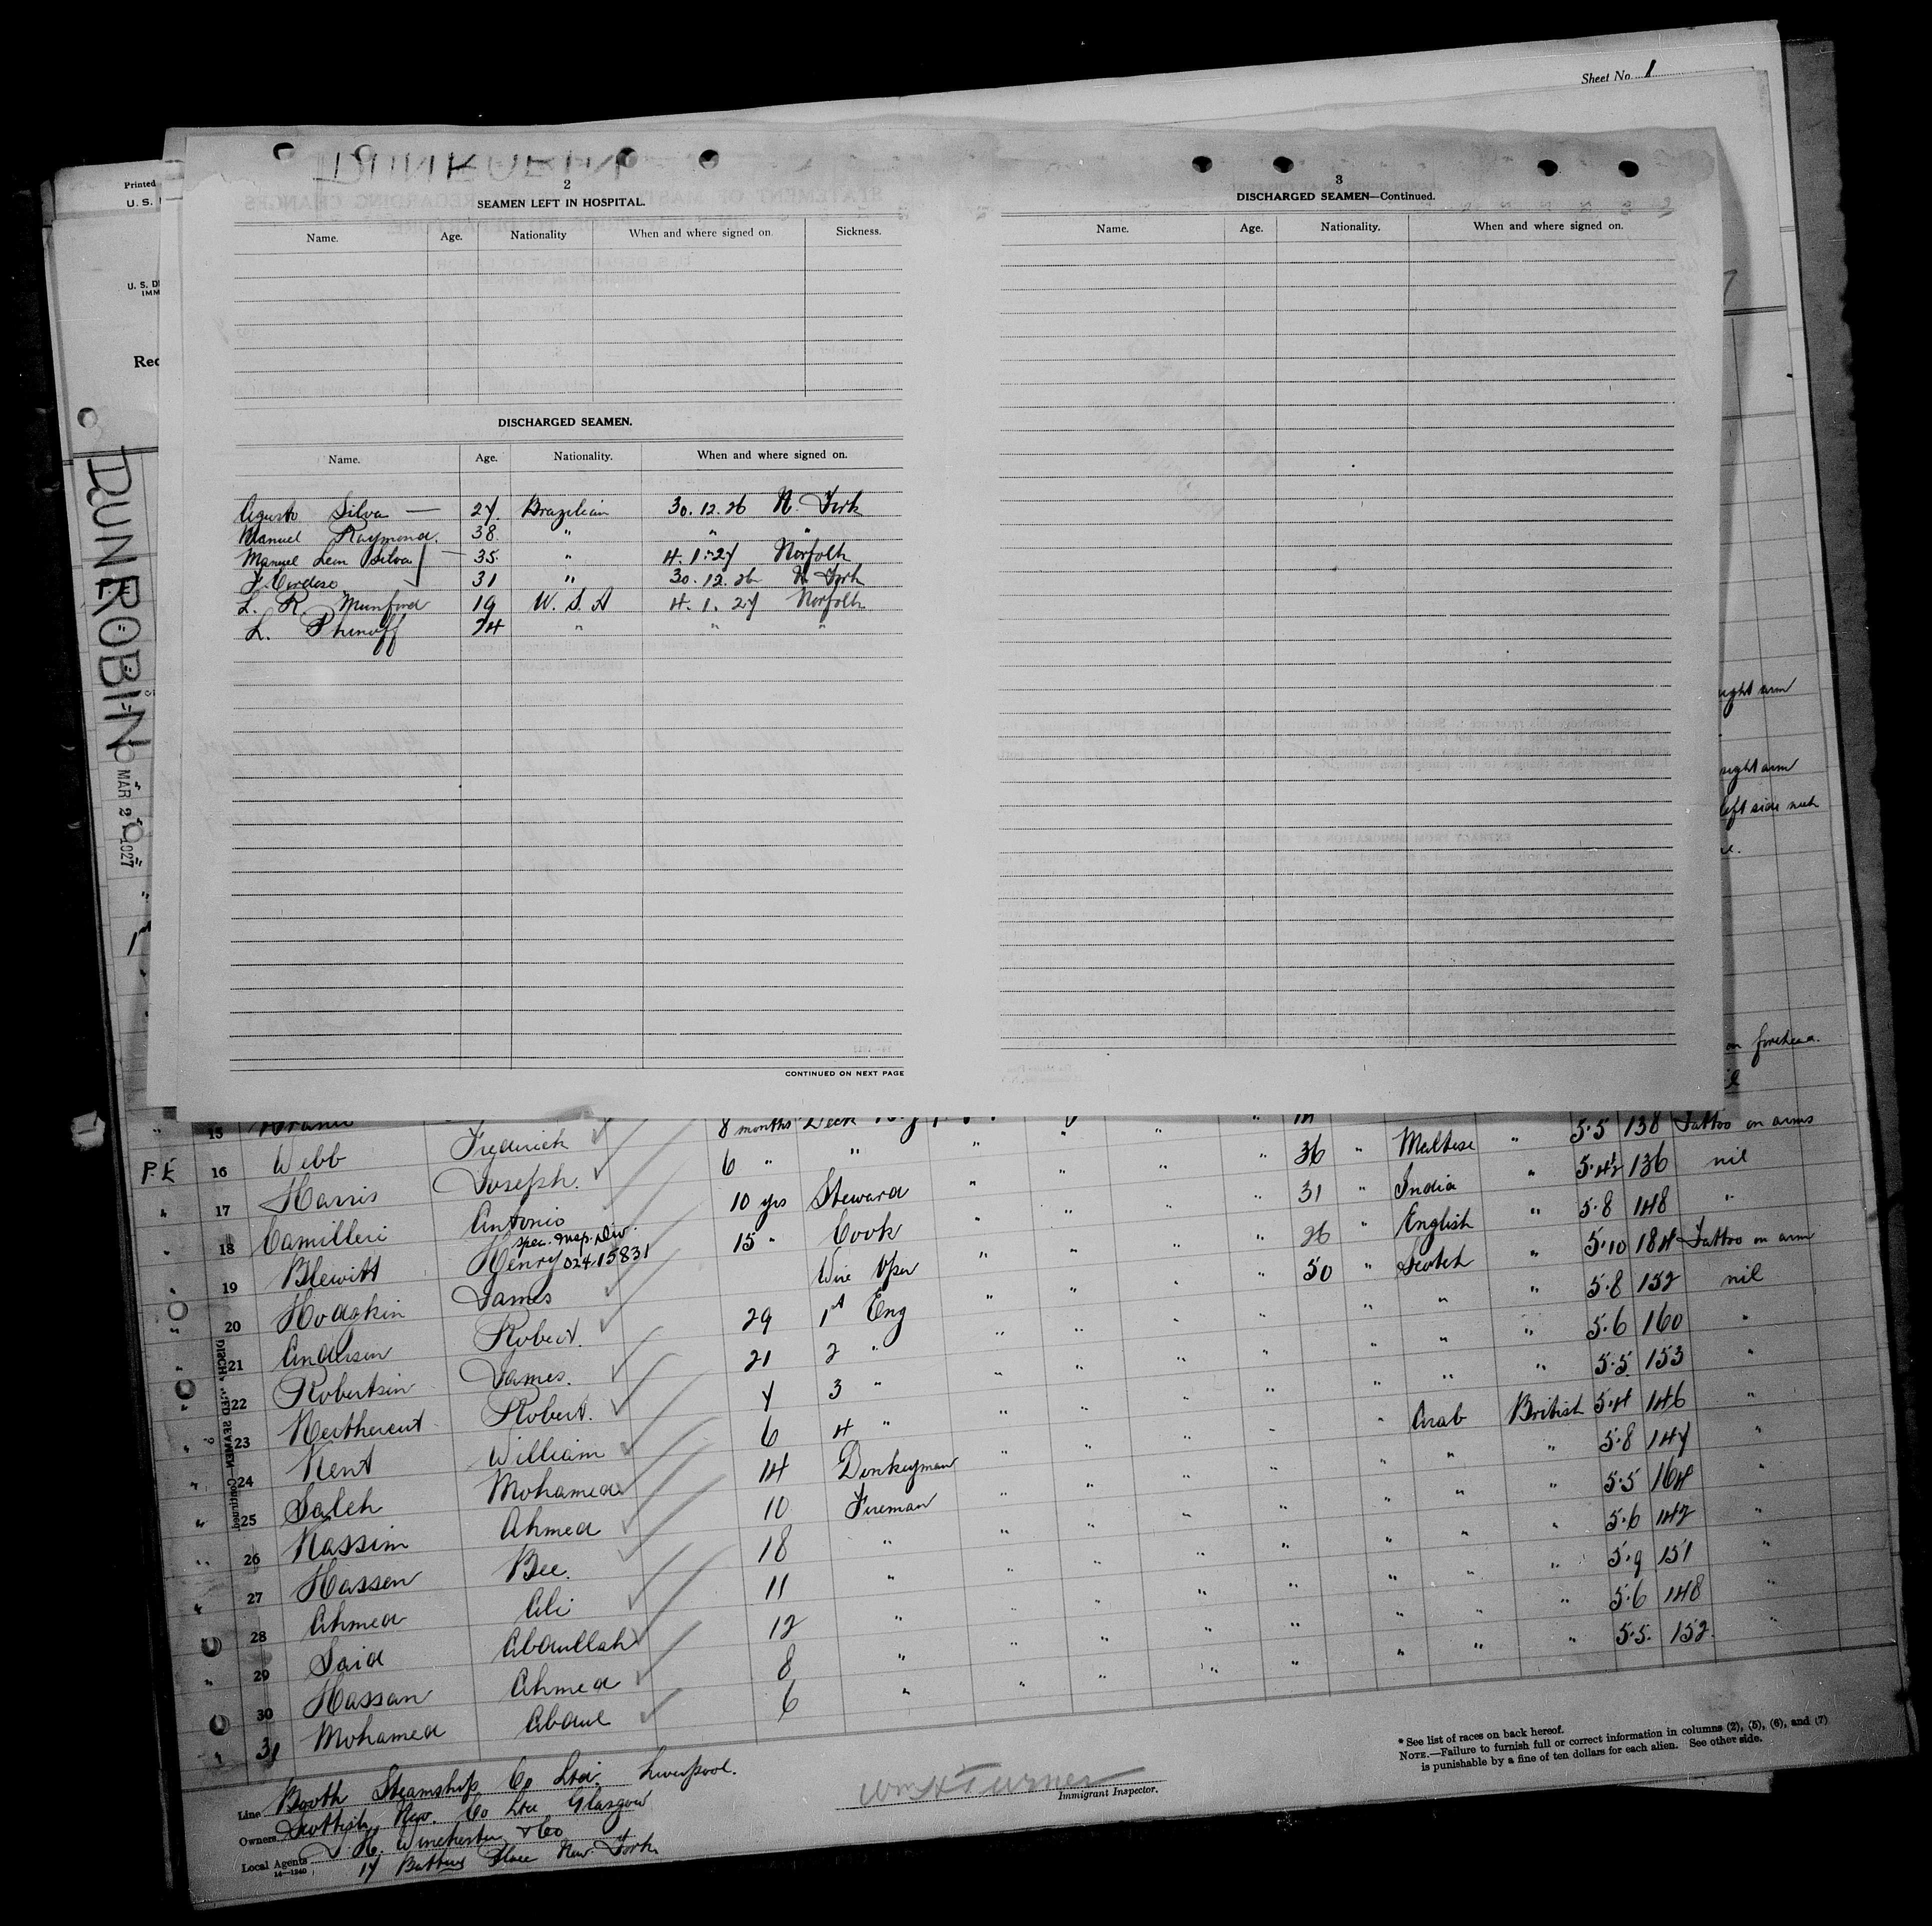 Sheet No. 1
Printed
U. S.
U. S. D
IMM
Rec
DUNROBIN
MAR 2 1927
2
SEAMEN LEFT IN HOSPITAL.
Name. Age. Nationality When and where signed on. Sickness.
DISCHARGED SEAMEN.
Name. Age. Nationality. When and where signed on.
Agusto Silva — 27. Brazilian 30.12.26 N. York
Manuel Raymond. 38. " " "
Manuel Leon Silva — 35. " 4.1.27 Norfolk
F. Cordoso 31 " 30.12.26 N. York
L. R. Munford 19 U. S. A 4.1.27 Norfolk
L. Phinoff 24 " " "
CONTINUED ON NEXT PAGE
3
DISCHARGED SEAMEN—Continued.
Name. Age. Nationality. When and where signed on.
right arm
right arm
left side neck
on forehead.
15 8 months Deck
P.E 16 Webb Frederick 6 " " " " " " 36 " Maltese " 5.5 138 Tattoo on arms
" 17 Harris Joseph. 10 yrs Steward " " " " 31 " India " 5.4½ 136 nil
" 18 Camilleri Antonio 15 " Cook " " " " 26 " English " 5.8 148 "
spec. insp. Div.
" 19 Blewitt Henry 024.15831 Wire Oper " " " " 50 " Scotch " 5.10 184 Tattoo on arm
" 20 Hodgkin James 29 1st Eng " " " " " " " 5.8 152 nil
" 21 Anderson Robert. 21 2 " " " " " " " " 5.6 160 "
" 22 Robertson James. 7 3 " " " " " " " " 5.5 153 "
" 23 Robert. 6 4 " " " " " " Arab British 5.4 146 "
" 24 Kent William 14 Donkeyman " " " " " " " 5.8 147 "
" 25 Saleh Mohamed 10 Fireman " " " " " " " 5.5 164 "
" 26 Kassim Ahmed 18 " " " " " " " " 5.6 142 "
" 27 Hassen Bee. 11 " " " " " " " " 5.9 151 "
" 28 Ahmed Ali 12 " " " " " " " " 5.6 148 "
" 29 Said Abdullah 8 " " " " " " " " 5.5. 152. "
" 30 Hassan Ahmed 6 "
" 31 Mohamed Abdul
DISCHARGED SEAMEN Continued
Line Booth Steamship Co Ltd. Liverpool.
Owners Scottish Nav. Co Ltd Glasgow
Local Agents J. H. Winchester & Co
14—1240
17 Battery Place New York
Wm H Turner
Immigrant Inspector.
* See list of races on back hereof.
NOTE.—Failure to furnish full or correct information in columns (2), (5), (6), and (7)
is punishable by a fine of ten dollars for each alien. See other side.